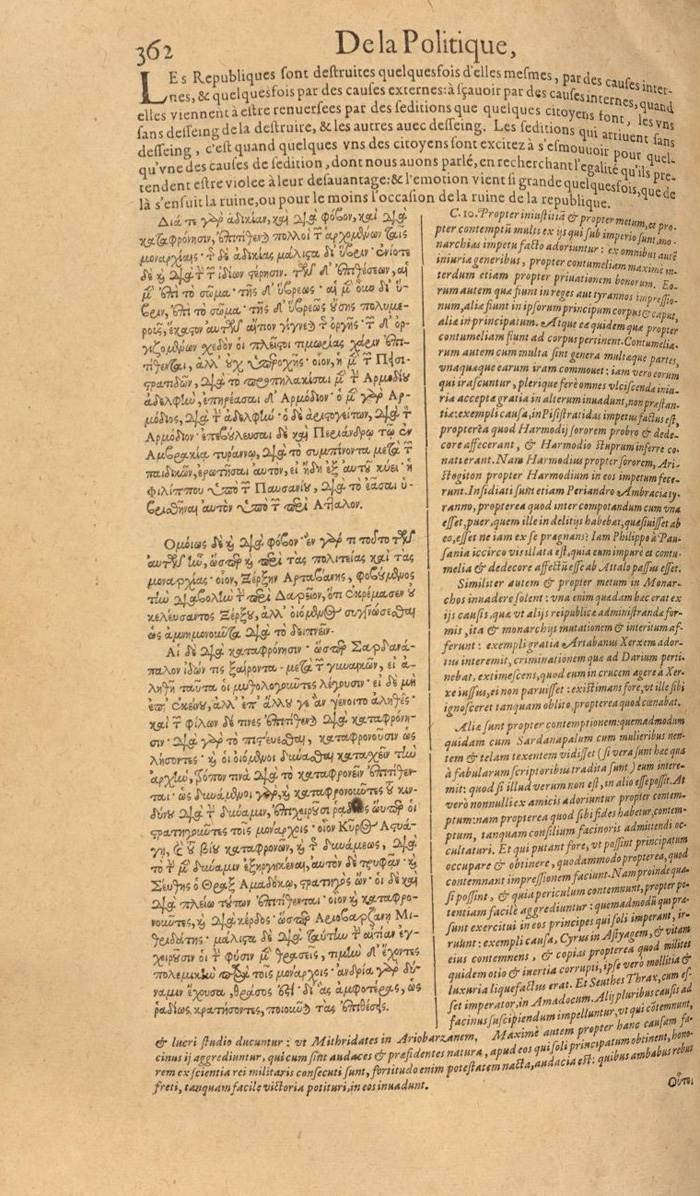 362
De la Politique,
LEs Republiques sont destruites quelquesfois d'elles mesmes, par des causes inter-
nes, & quelquesfois par des causes externes: à sçauoir par des causes internes, quand
elles viennent à estre renuersees par des seditions que quelques citoyens font, les vns
sans desseing de la destruire, & les autres auec desseing. Les seditions qui arriuent sans
desseing, c'est quand quelques vns des citoyens sont excitez à s'esmouuoir pour quel-
qu'vne des causes de sedition, dont nous auons parlé, en recherchant l'egalité qu'ils pre-
tendent estre violee à leur desauantage: & l'emotion vient si grande quelquesfois, que de
là s'ensuit la ruine, ou pour le moins l'occasion de la ruine de la republique.
Διά τε γὰρ ἀδικίαν, καὶ διὰ φόβον, καὶ διὰ
καταφρόνησιν, ἐπιτίθενται πολλοὶ τῶν ἀρχομένων ταῖς
μοναρχίαις· τῆς δὲ ἀδικίας μάλιστα δι' ὕβριν· ἐνίοτε
δὲ καὶ διὰ τὴν τῶν ἰδίων στέρησιν. τῶν δ' ἐπιθέσεων, αἱ
μὲν ἐπὶ τὸ σῶμα· τῆς δ' ὕβρεως· αἱ μὲν οὖν δι' ὕ-
βριν, ἐπὶ τὸ σῶμα· τῆς δ' ὕβρεως οὔσης πολυμε-
ροῦς, ἕκαστον αὐτῶν αἴτιον γίγνεται τῆς ὀργῆς· τῶν δ' ὀρ-
γιζομένων σχεδὸν οἱ πλεῖστοι τιμωρίας χάριν ἐπι-
τίθενται, ἀλλ' οὐχ ὑπεροχῆς· οἷον, ἡ μὲν τῶν Πεισι-
στρατιδῶν, διὰ τὸ προπηλακίσαι μὲν τὴν Ἁρμοδίου
ἀδελφὴν, ἐπηρεάσαι δ' Ἁρμόδιον· ὁ μὲν γὰρ Ἁρ-
μόδιος, διὰ τὴν ἀδελφὴν· ὁ δὲ ἀριστογείτων, διὰ τὸν
Ἁρμόδιον· ἐπεβούλευσαν δὲ καὶ Περιάνδρῳ τῷ ἐν
Ἀμβρακίᾳ τυράννῳ, διὰ τὸ συμπίνοντα μετὰ τῶν
παιδικῶν, ἐρωτῆσαι αὐτὸν, εἰ ἤδη ἐξ αὐτοῦ κύει· ἡ
Φιλίππου ὑπὸ τοῦ Παυσανίου, διὰ τὸ ἐᾶσαι ὑ-
βρισθῆναι αὐτὸν ὑπὸ τῶν περὶ Ἄτταλον.
Ὁμοίως δὲ καὶ διὰ φόβον· ἓν γάρ τι τοῦτο τῶν
αὐτῶν ἦν, ὥσπερ καὶ περὶ τὰς πολιτείας καὶ τὰς
μοναρχίας· οἷον, Ξέρξην Ἀρταβάνης, φοβούμενος
τὴν διαβολὴν τὴν περὶ Δαρεῖον, ὅτι ἐκρέμασεν οὐ
κελεύσαντος Ξέρξου, ἀλλ' οἰόμενος συγγνώσεσθαι
ὡς ἀμνημονοῦντα διὰ τὸ δειπνεῖν.
Αἱ δὲ διὰ καταφρόνησιν· ὥσπερ Σαρδανά-
παλον ἰδών τις ξαίνοντα μετὰ τῶν γυναικῶν, εἰ ἀ-
ληθῆ ταῦτα οἱ μυθολογοῦντες λέγουσιν· εἰ δὲ μὴ
ἐπ' ἐκείνου, ἀλλ' ἐπ' ἄλλου γε ἂν γένοιτο ἀληθές·
καὶ τῶν φίλων δέ τινες ἐπιτίθενται διὰ καταφρόνη-
σιν· διὰ γὰρ τὸ πιστεύεσθαι, καταφρονοῦσιν ὡς
λήσοντες· καὶ οἱ οἰόμενοι δύνασθαι κατασχεῖν τὴν
ἀρχὴν, τρόπον τινὰ διὰ τὸ καταφρονεῖν ἐπιτίθεν-
ται· ὡς δυνάμενοι γὰρ, καὶ καταφρονοῦντες τοῦ κιν-
δύνου διὰ τὴν δύναμιν, ἐπιχειροῦσι ῥᾳδίως ὥσπερ οἱ
στρατηγοῦντες τοῖς μονάρχοις· οἷον Κῦρος Ἀστυά-
γῃ, καὶ τοῦ βίου καταφρονῶν, καὶ τῆς δυνάμεως, διὰ
τὸ τὴν μὲν δύναμιν ἐξηργηκέναι, αὐτὸν δὲ τρυφᾶν· καὶ
Σεύθης ὁ Θρᾷξ Ἀμαδόκῳ, στρατηγὸς ὤν· οἱ δὲ καὶ
διὰ πλείω τούτων ἐπιτίθενται· οἷον καὶ καταφρο-
νοῦντες, καὶ διὰ κέρδος· ὥσπερ Ἀριοβαρζάνῃ Μι-
θριδάτης· μάλιστα δὲ διὰ ταύτην τὴν αἰτίαν ἐγ-
χειροῦσιν οἱ τὴν φύσιν μὲν θρασεῖς, τιμὴν δ' ἔχοντες
πολεμικὴν παρὰ τοῖς μονάρχοις· ἀνδρία γὰρ δύ-
ναμιν ἔχουσα, θράσος ἐστί· δι' ἃς ἀμφοτέρας, ὡς
ῥᾳδίως κρατήσοντες, ποιοῦνται τὰς ἐπιθέσεις.
C. 10. Propter iniustitiā & propter metum, et pro-
pter contemptū multi ex ijs qui sub imperio sunt, mo-
narchias impetu facto adoriuntur: ex omnibus autē
iniuriæ generibus, propter contumeliam maximè in-
terdum etiam propter priuationem bonorum. Eo-
rum autem quæ fiunt in reges aut tyrannos impressio-
num, aliæ fiunt in ipsorum principum corpus & caput,
aliæ in principatum. Atque ea quidem quæ propter
contumeliam fiunt ad corpus pertinent. Contumelia-
rum autem cum multa sint genera multæque partes,
vnaquæque earum iram commouet: iam vero eorum
qui irascuntur, plerique ferè omnes vlciscendæ iniu-
riæ accepta gratia in alterum inuadunt, non præstan-
tiæ: exempli causa, in Pisistratidas impetus factus est,
propterea quod Harmodij sororem probro & dede-
core affecerant, & Harmodio stuprum inferre co-
nati erant. Nam Harmodius propter sororem, Ari-
stogiton propter Harmodium in eos impetum fece-
runt. Insidiati sunt etiam Periandro Ambraciæ ty-
ranno, propterea quod inter compotandum cum vna
esset, puer, quem ille in delitijs habebat, quæsiuisset ab
eo, esset ne iam ex se prægnans: Iam Philippo à Pau-
sania iccirco vis illata est, quia eum impurè et contu-
melia & dedecore affectū esse ab Attalo passus esset.
Similiter autem & propter metum in Monar-
chos inuadere solent: vna enim quædam hæc erat ex
ijs causis, quæ vt alijs reipublicæ administrandæ for-
mis, ita & monarchijs mutationem & interitum af-
ferunt: exempli gratia Artabanus Xerxem ador-
sus interemit, criminationem quæ ad Darium perti-
nebat, extimescens, quod eum in crucem ageret Xer-
xe iussus, ei non paruisset: existimans fore, vt ille sibi
ignosceret tanquam oblito, propterea quod cœnabat.
Aliæ sunt propter contemptionem: quemadmodum
quidam cum Sardanapalum cum mulieribus nen-
tem & telam texentem vidisset (si vera sunt hæc quæ
à fabularum scriptoribus tradita sunt) eum intere-
mit: quod si illud verum non est, in alio esse possit. At
verò nonnulli ex amicis adoriuntur propter contem-
ptum: nam propterea quod sibi fides habetur, contem-
ptum, tanquam consilium facinoris admittendi oc-
cultaturi. Et qui putant fore, vt possint principatum
occupare & obtinere, quodammodo propterea, quod
contemnant impressionem faciunt. Nam proinde quasi
si possint, & quia periculum contemnunt, propter po-
tentiam facilè aggrediuntur: quemadmodū qui præ-
sunt exercitui in eos principes qui soli imperant, ir-
ruunt: exempli causa, Cyrus in Astyagem, & vitam
eius contemnens, & copias propterea quod milites
quidem otio & inertia corrupti, ipse verò mollitia &
luxuria liquefactus erat. Et Seuthes Thrax, cum es-
set imperator, in Amadocum. Alij pluribus causis ad
facinus suscipiendum impelluntur, vt qui cōtemnunt,
& lucri studio ducuntur: vt Mithridates in Ariobarzanem, Maximè autem propter hanc causam fa-
cinus ij aggrediuntur, qui cum sint audaces & præfidentes natura, apud eos qui soli principatum obtinent, hono-
rem ex scientia rei militaris consecuti sunt, fortitudo enim potestatem nacta, audacia est: quibus ambabus rebus
freti, tanquam facile victoria potituri, in eos inuadunt.
Οὗτοι